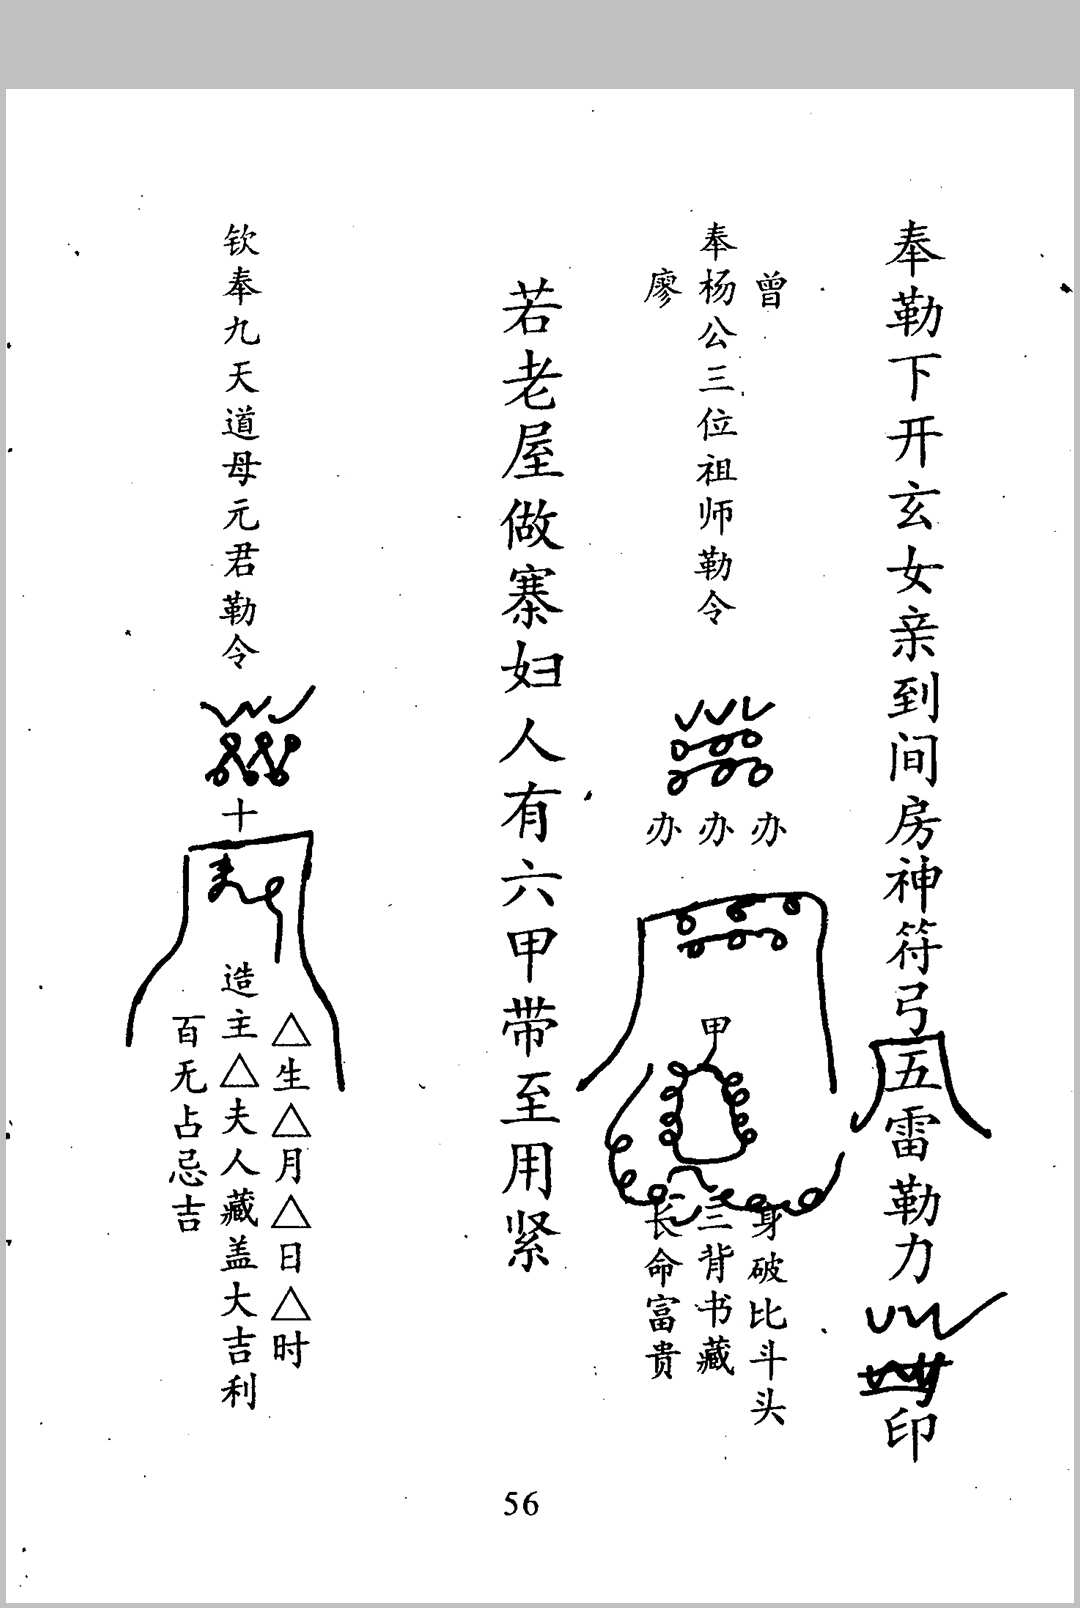 奉勒下开玄女亲到间房神符弓五雷勒力
印
曾
奉杨公三位祖师勒令
廖
办办办
甲
身破比斗头
三背书藏
长命富贵
若老屋做寨妇人有六甲带至用紧
钦奉九天道母元君勒令
十
△生△月△日△时
造主△夫人藏盖大吉利
百无占忌吉
56